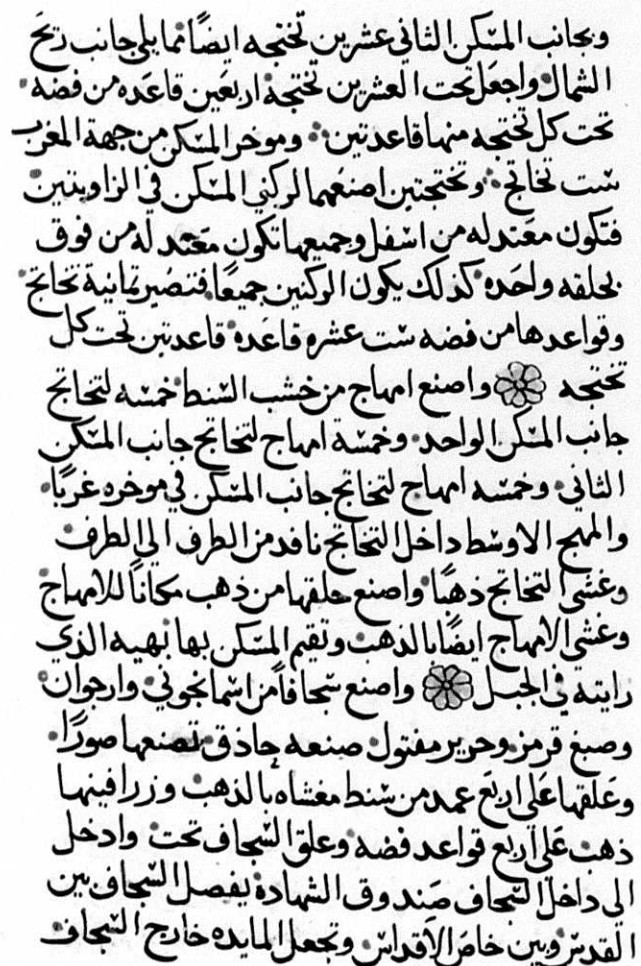 وبجانب المسكن الثاني عشرين تختجه ايضًا مما يلي جانب ريح
الشمال واجعل تحت العشرين تختجة اربعين قاعده من فضه
تحت كل تختجه منها قاعدتين وموخر المسكن من جهة المغرب
ست تخاتج وتختجتين اصنعهما لركني المسكن في الزاويتين
فتكون معتدله من اسفل وجميعها تكون معتدله من فوق
بحلقه واحده كذلك يكون الركنين جميعًا فتصير ثمانية تخاتج
وقواعدها من فضه ست عشره قاعدة قاعدتين تحت كل
تختجه واصنع امهاج من خشب الشنط خمسه لتخاتج
جانب المسكن الواحد وخمسة امهاج لتخاتج جانب المسكن
الثاني وخمسه امهاج لتخاتج جانب المسكن في موخره غربًا
والمهج الاوسط داخل التخاتج نافد من الطرف الي الطرف
وغشي التخاتج ذهبًا واصنع حلقها من ذهب مكانًا للامهاج
وغشي الامهاج ايضًا بالذهب وتقيم المسكن بها بهيه الذي
رايته في الجبل واصنع سجافًا من اسمانجوني وارجوان
وصبغ قرمز وحرير مفتول صنعه حاذق تصنعها صورًا
وعلقها علي اربع عمد من شنط مغشاه بالذهب وزرافينها
ذهب علي اربع قواعد فضه وعلق السجاف تحت وادخل
الي داخل السجاف صندوق الشهادة يفصل السجاف بين
القدس وبين خاص الاقداس وتجعل المايده خارج السجاف